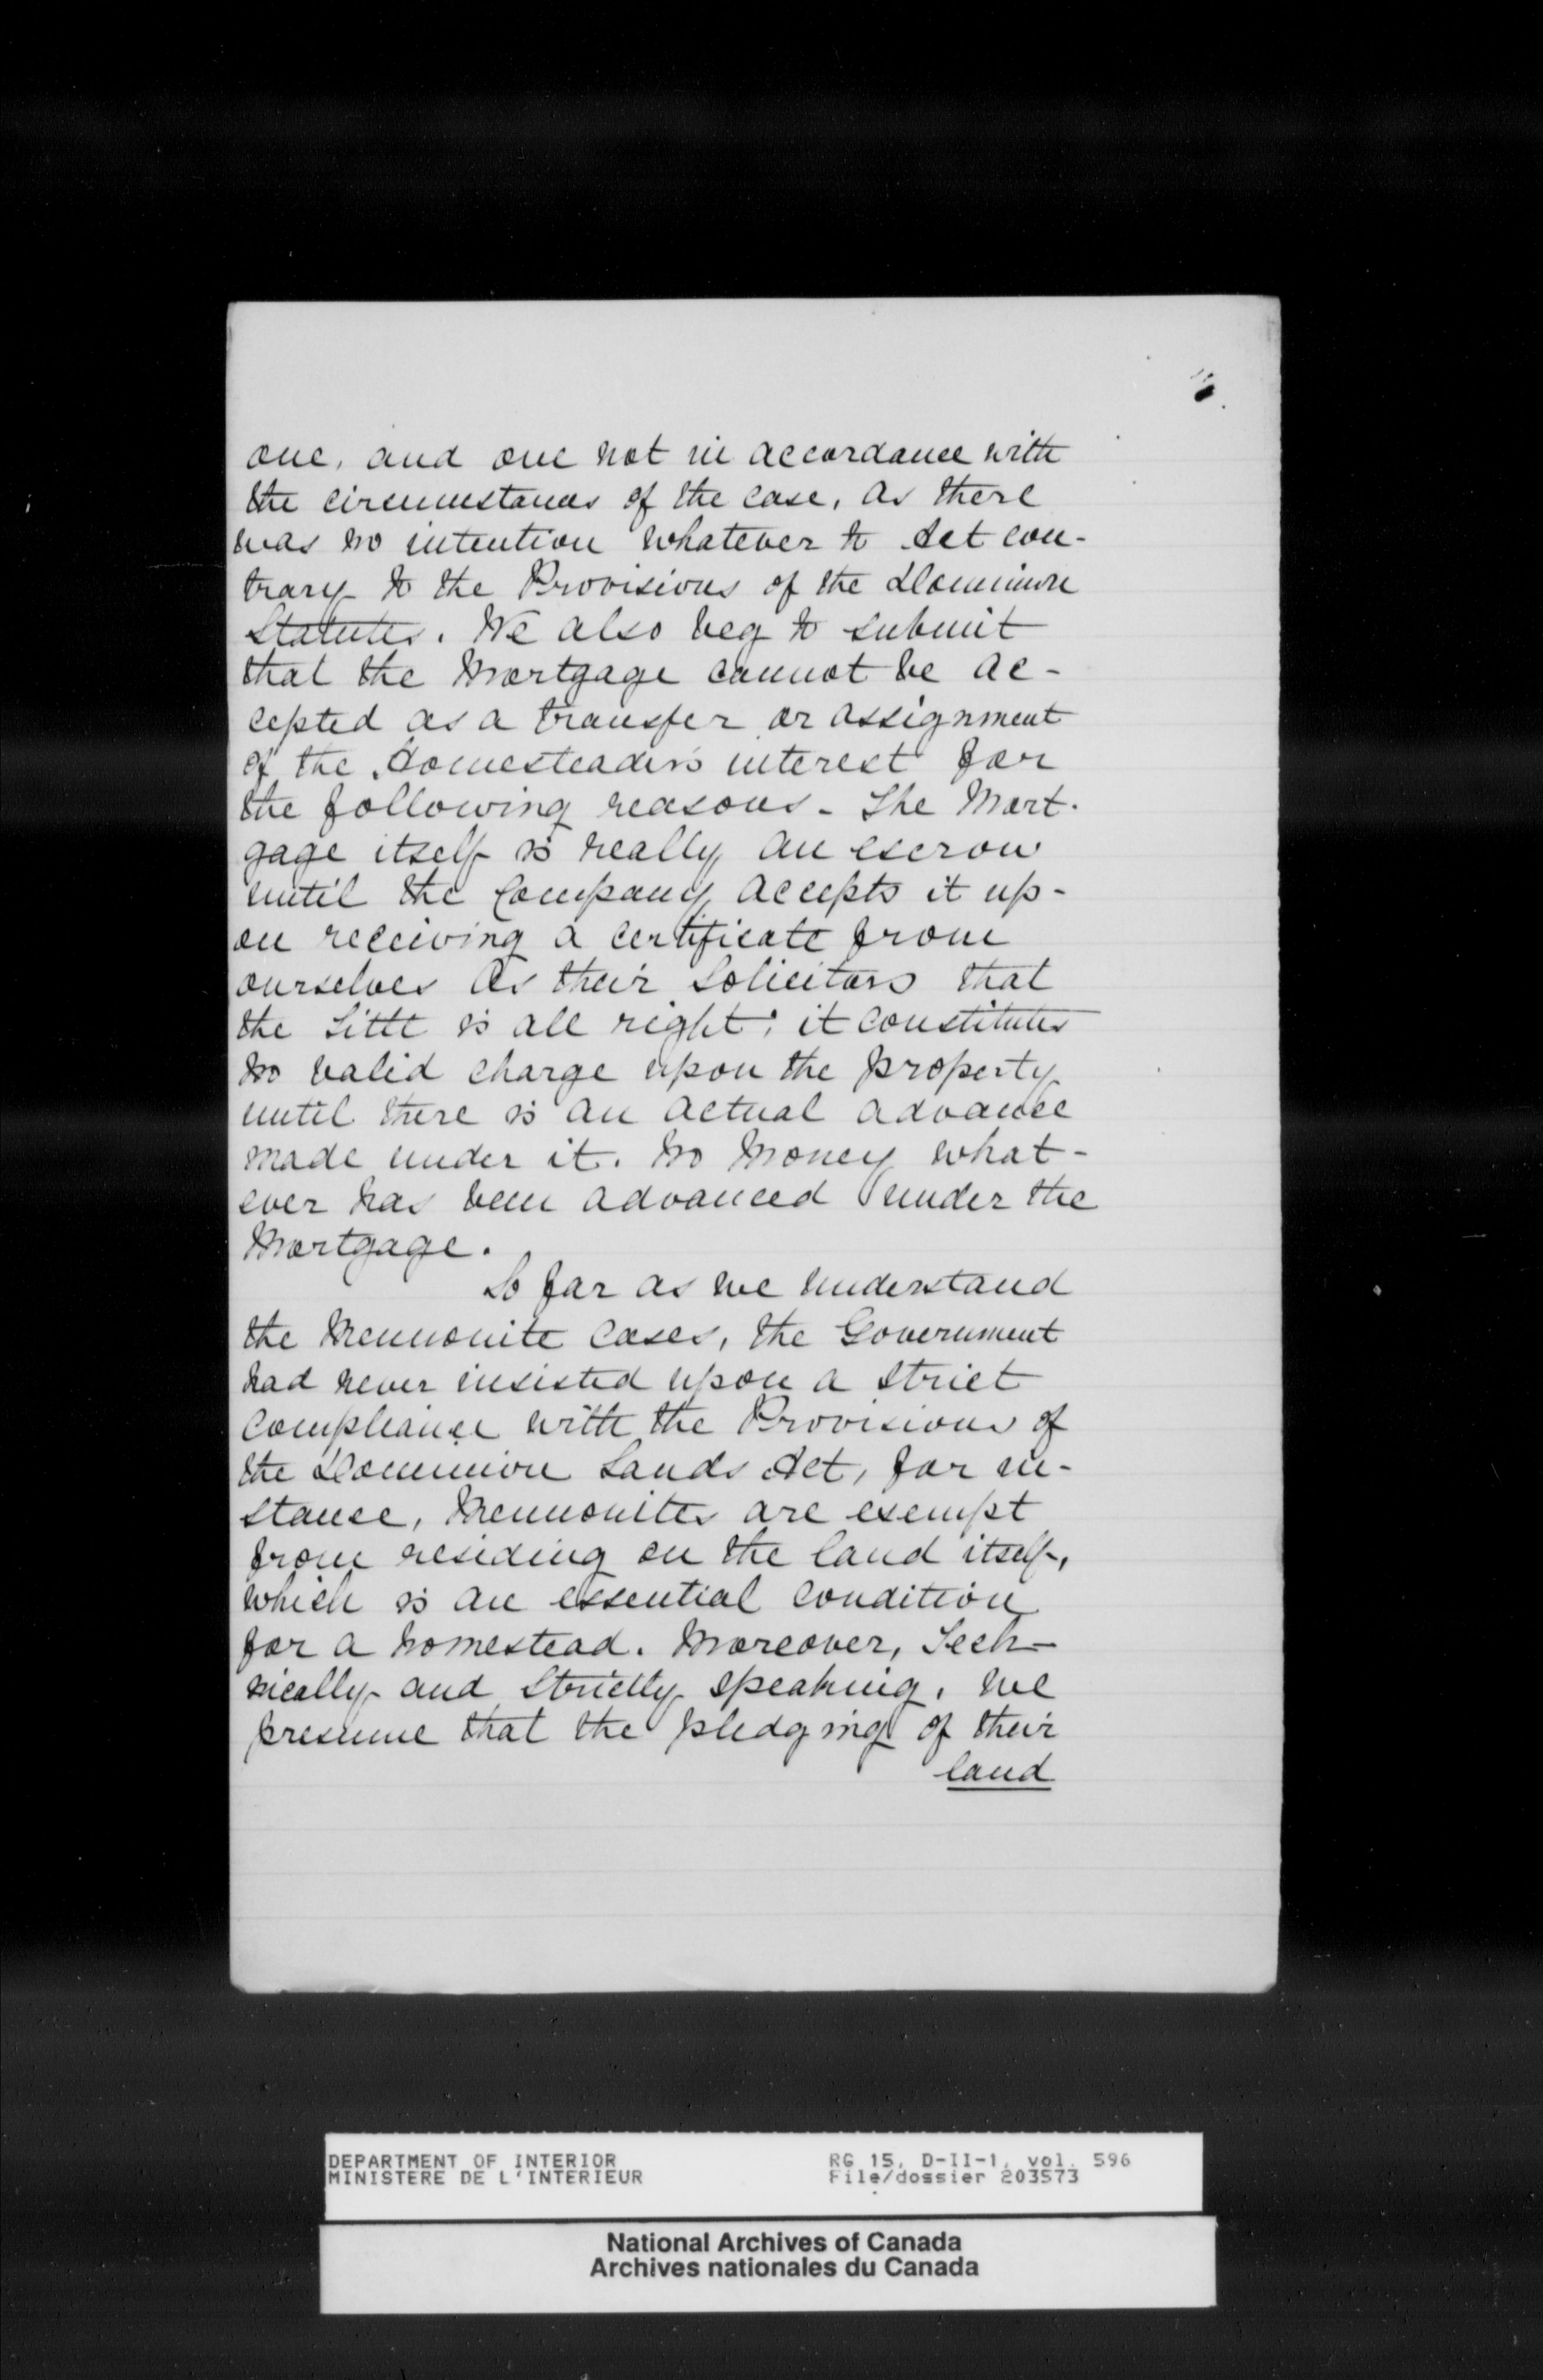 one, and one not in accordance with
the circumstances of the case, as there
was no intention whatever to Act con-
trary to the Provisions of the Dominion
Statutes. We also beg to submit
that the Mortgage cannot be ac-
cepted as a transfer or assignment
of the Homesteader's interest for
the following reasons - The Mort-
gage itself is really an escrow
until the Company accepts it up-
on receiving a certificate from
ourselves as their Solicitors that
the Title is all right; it constitutes
no valid charge upon the property
until there is an actual advance
made under it. No Money what-
ever has been advanced under the
Mortgage.
So far as we understand
the Mennonite cases, the Government
had never insisted upon a strict
compliance with the Provisions of
the Dominion Lands Act, for in-
stance, Mennonites are exempt
from residing on the land itself,
which is an essential condition
for a homestead. Moreover, Tech-
nically and Strictly speaking, we
presume that the pledging of their
land
DEPARTMENT OF INTERIOR RG 15, D-II-1, vol. 596
MINISTERE DE L'INTERIEUR File/dossier 203573
National Archives of Canada
Archives nationales du Canada